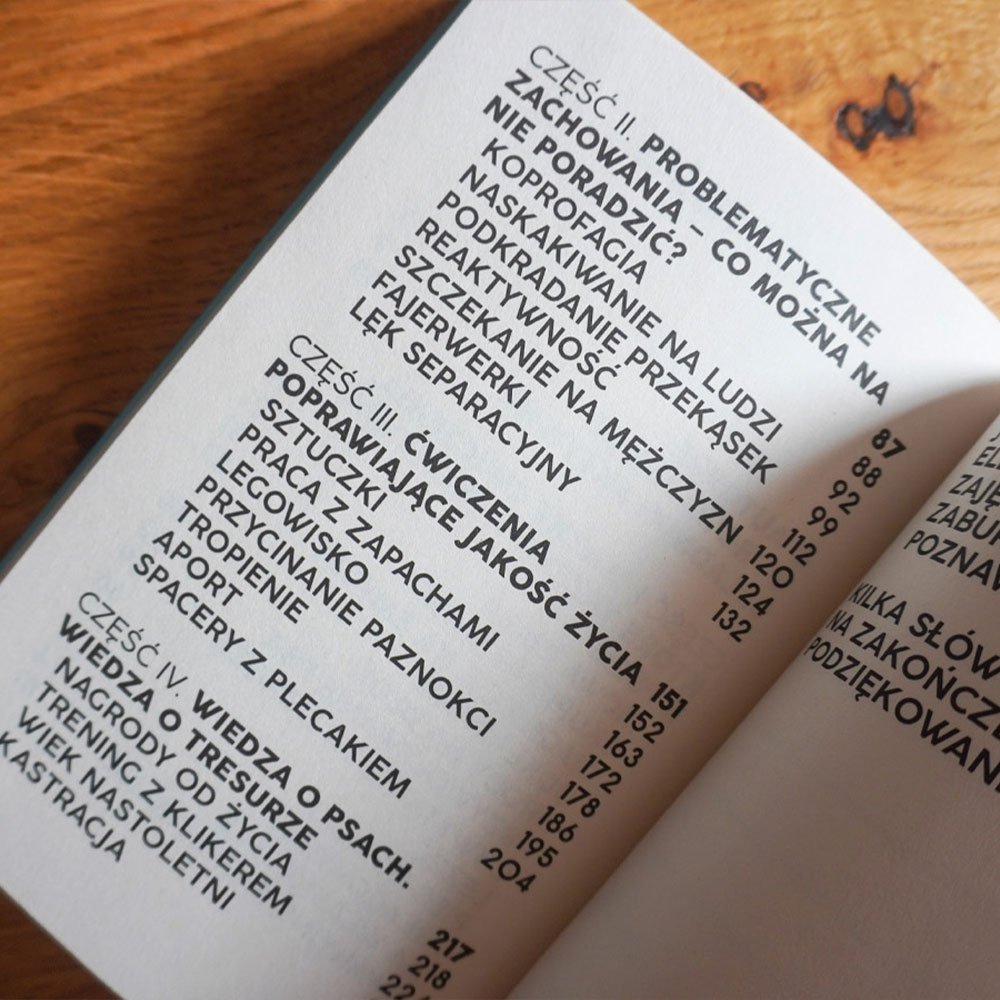 CZĘŚĆ II. PROBLEMATYCZNE
ZACHOWANIA – CO MOŻNA NA
NIE PORADZIĆ? 87
KOPROFAGIA 88
NASKAKIWANIE NA LUDZI 92
PODKRADANIE PRZEKĄSEK 99
REAKTYWNOŚĆ 112
SZCZEKANIE NA MĘŻCZYZN 120
FAJERWERKI 124
LĘK SEPARACYJNY 132
CZĘŚĆ III. ĆWICZENIA
POPRAWIAJĄCE JAKOŚĆ ŻYCIA 151
SZTUCZKI 152
PRACA Z ZAPACHAMI 163
LEGOWISKO 172
PRZYCINANIE PAZNOKCI 178
TROPIENIE 186
APORT 195
SPACERY Z PLECAKIEM 204
CZĘŚĆ IV. WIEDZA O PSACH.
WIEDZA O TRESURZE 217
NAGRODY OD ŻYCIA 218
TRENING Z KLIKEREM 224
WIEK NASTOLETNI
KASTRACJA
ZAJĘ
ZABUR
POZNAW
KILKA SŁÓW
NA ZAKOŃCZE
PODZIĘKOWANI